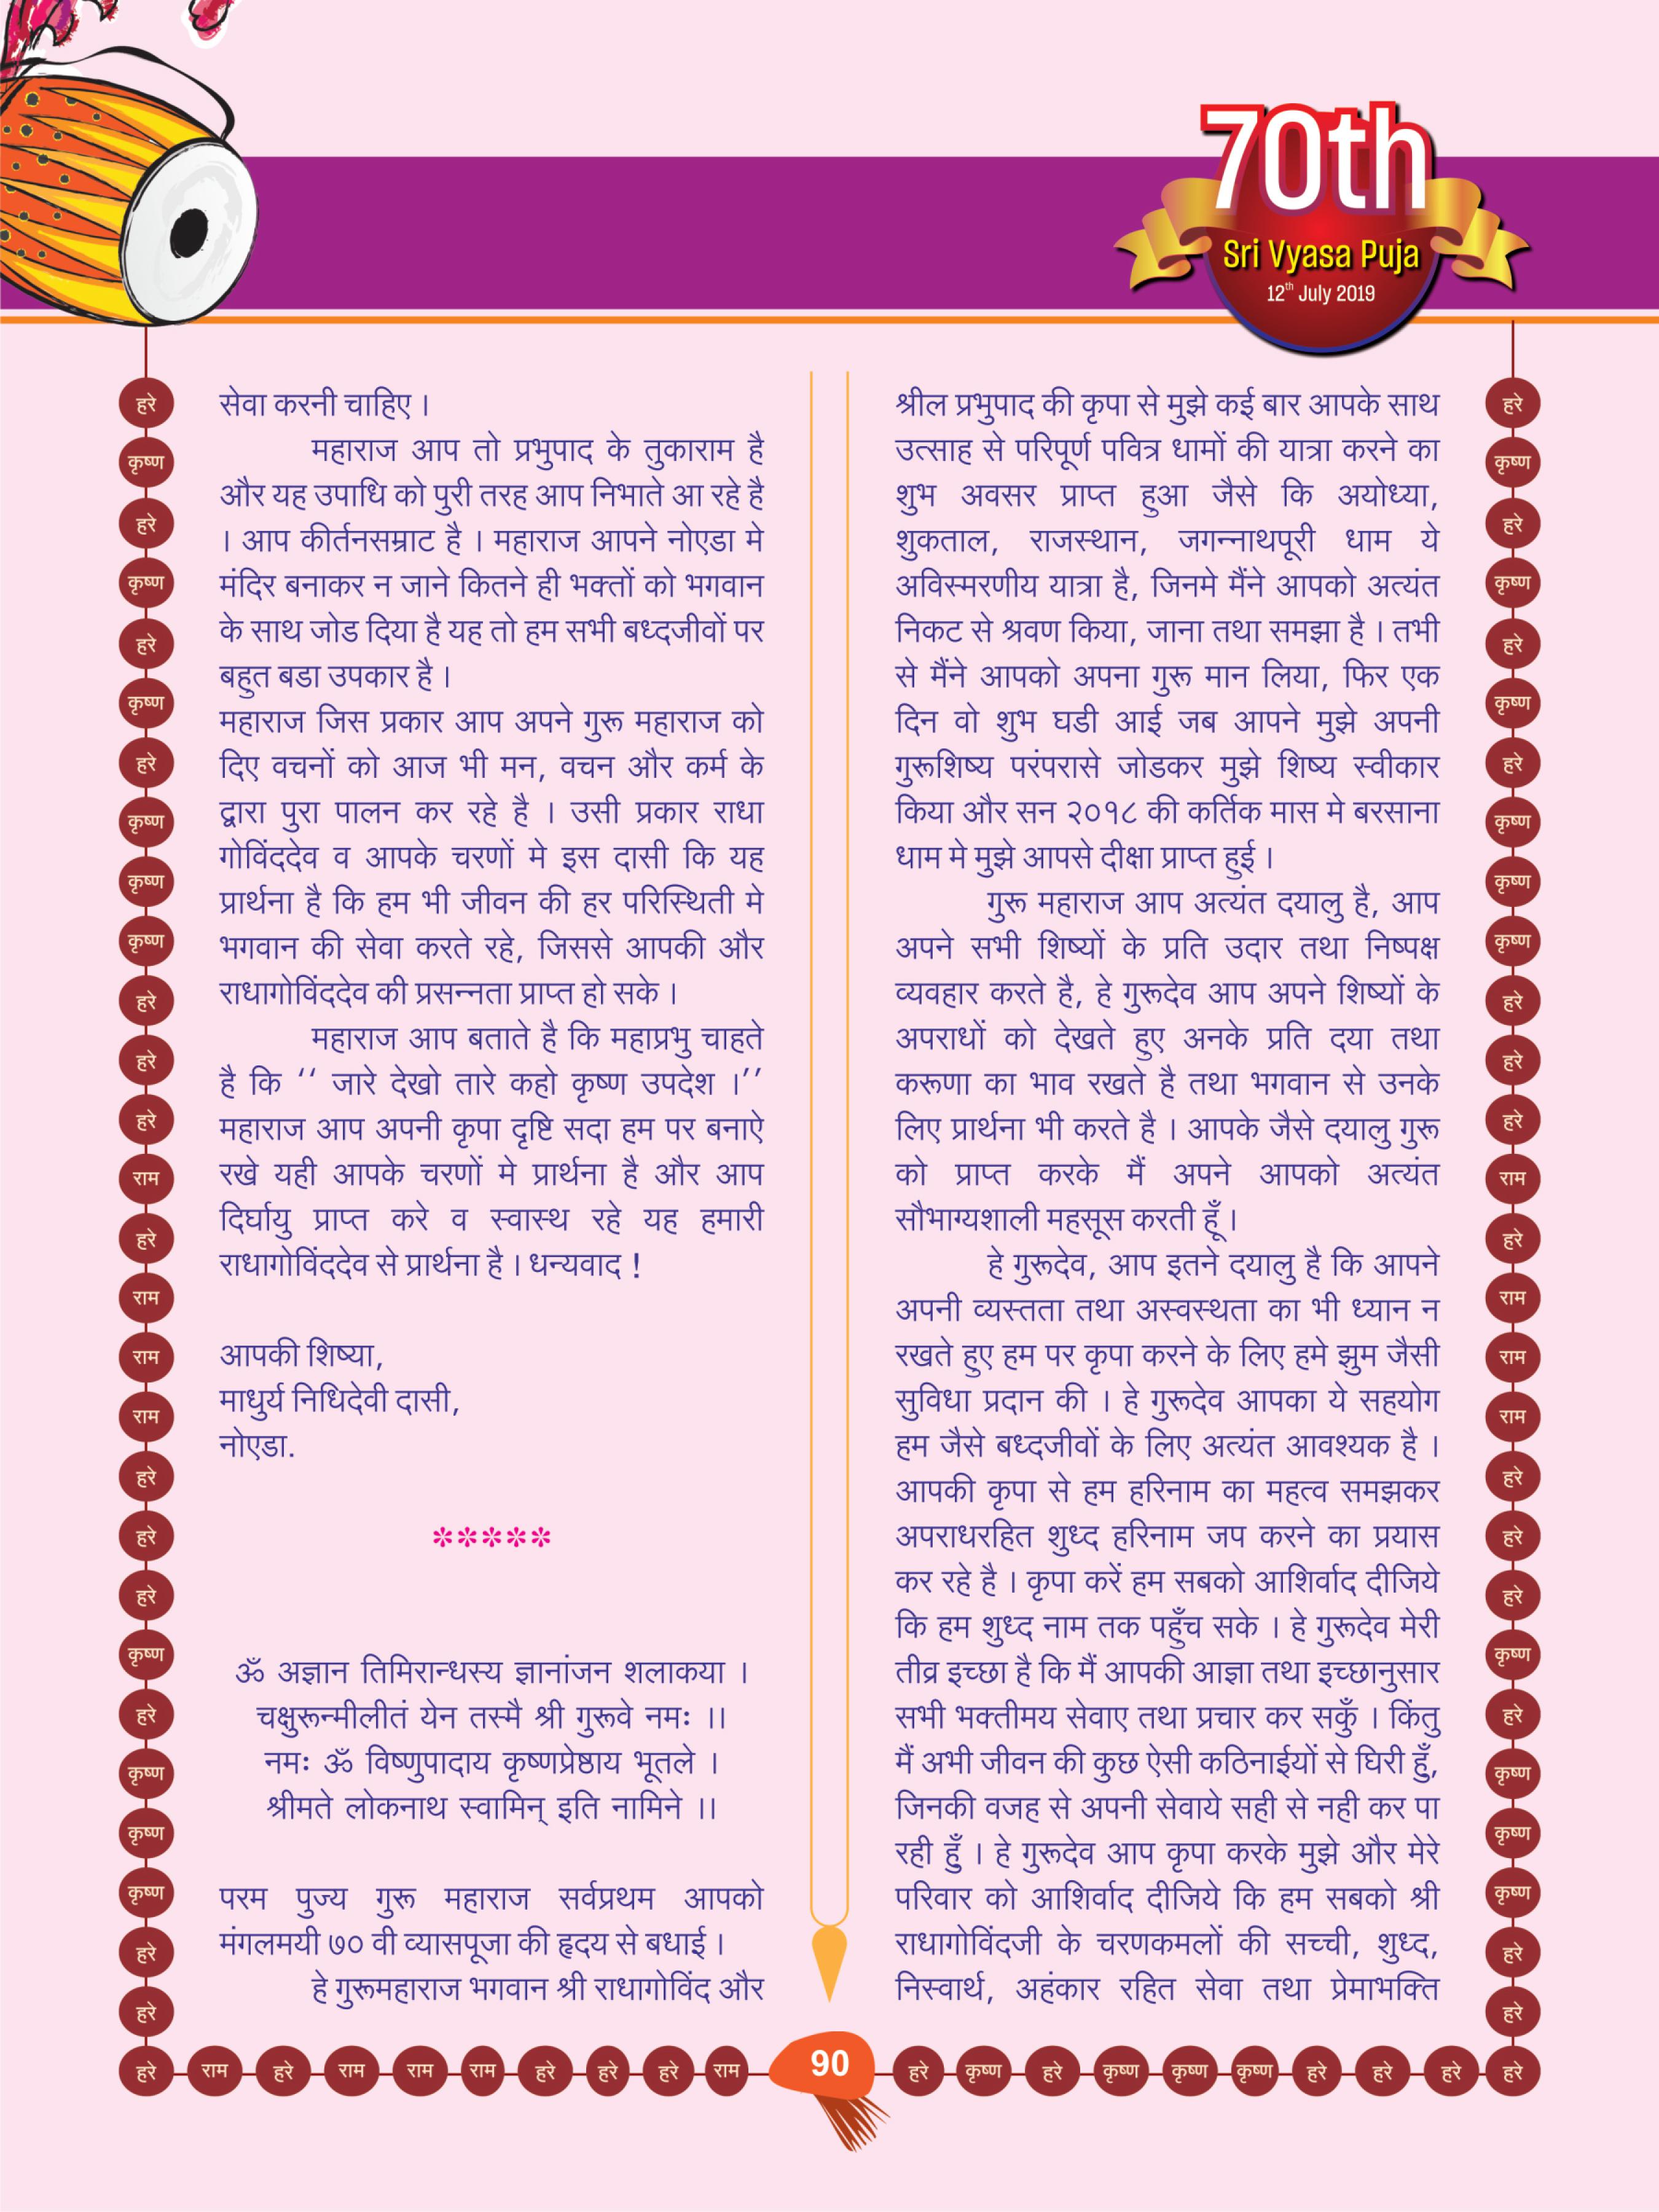 70th
Sri Vyasa Puja
12th July 2019
सेवा करनी चाहिए ।
महाराज आप तो प्रभुपाद के तुकाराम है
और यह उपाधि को पुरी तरह आप निभाते आ रहे है
। आप कीर्तनसम्राट है । महाराज आपने नोएडा मे
मंदिर बनाकर न जाने कितने ही भक्तों को भगवान
के साथ जोड दिया है यह तो हम सभी बध्दजीवों पर
बहुत बडा उपकार है ।
महाराज जिस प्रकार आप अपने गुरू महाराज को
दिए वचनों को आज भी मन, वचन और कर्म के
द्वारा पुरा पालन कर रहे है । उसी प्रकार राधा
गोविंददेव व आपके चरणों मे इस दासी कि यह
प्रार्थना है कि हम भी जीवन की हर परिस्थिती मे
भगवान की सेवा करते रहे, जिससे आपकी और
राधागोविंददेव की प्रसन्नता प्राप्त हो सके ।
महाराज आप बताते है कि महाप्रभु चाहते
है कि ‘‘ जारे देखो तारे कहो कृष्ण उपदेश ।’’
महाराज आप अपनी कृपा दृष्टि सदा हम पर बनाऐ
रखे यही आपके चरणों मे प्रार्थना है और आप
दिर्घायु प्राप्त करे व स्वास्थ रहे यह हमारी
राधागोविंददेव से प्रार्थना है । धन्यवाद !
आपकी शिष्या,
माधुर्य निधिदेवी दासी,
नोएडा.
*****
ॐ अज्ञान तिमिरान्धस्य ज्ञानांजन शलाकया ।
चक्षुरून्मीलीतं येन तस्मै श्री गुरूवे नमः ।।
नमः ॐ विष्णुपादाय कृष्णप्रेष्ठाय भूतले ।
श्रीमते लोकनाथ स्वामिन् इति नामिने ।।
परम पुज्य गुरू महाराज सर्वप्रथम आपको
मंगलमयी ७० वी व्यासपूजा की हृदय से बधाई ।
हे गुरूमहाराज भगवान श्री राधागोविंद और
श्रील प्रभुपाद की कृपा से मुझे कई बार आपके साथ
उत्साह से परिपूर्ण पवित्र धामों की यात्रा करने का
शुभ अवसर प्राप्त हुआ जैसे कि अयोध्या,
शुकताल, राजस्थान, जगन्नाथपूरी धाम ये
अविस्मरणीय यात्रा है, जिनमे मैंने आपको अत्यंत
निकट से श्रवण किया, जाना तथा समझा है । तभी
से मैंने आपको अपना गुरू मान लिया, फिर एक
दिन वो शुभ घडी आई जब आपने मुझे अपनी
गुरूशिष्य परंपरासे जोडकर मुझे शिष्य स्वीकार
किया और सन २०१८ की कर्तिक मास मे बरसाना
धाम मे मुझे आपसे दीक्षा प्राप्त हुई ।
गुरू महाराज आप अत्यंत दयालु है, आप
अपने सभी शिष्यों के प्रति उदार तथा निष्पक्ष
व्यवहार करते है, हे गुरूदेव आप अपने शिष्यों के
अपराधों को देखते हुए अनके प्रति दया तथा
करूणा का भाव रखते है तथा भगवान से उनके
लिए प्रार्थना भी करते है । आपके जैसे दयालु गुरू
को प्राप्त करके मैं अपने आपको अत्यंत
सौभाग्यशाली महसूस करती हूँ ।
हे गुरूदेव, आप इतने दयालु है कि आपने
अपनी व्यस्तता तथा अस्वस्थता का भी ध्यान न
रखते हुए हम पर कृपा करने के लिए हमे झुम जैसी
सुविधा प्रदान की । हे गुरूदेव आपका ये सहयोग
हम जैसे बध्दजीवों के लिए अत्यंत आवश्यक है ।
आपकी कृपा से हम हरिनाम का महत्व समझकर
अपराधरहित शुध्द हरिनाम जप करने का प्रयास
कर रहे है । कृपा करें हम सबको आशिर्वाद दीजिये
कि हम शुध्द नाम तक पहुँच सके । हे गुरूदेव मेरी
तीव्र इच्छा है कि मैं आपकी आज्ञा तथा इच्छानुसार
सभी भक्तीमय सेवाए तथा प्रचार कर सकुँ । किंतु
मैं अभी जीवन की कुछ ऐसी कठिनाईयों से घिरी हुँ,
जिनकी वजह से अपनी सेवाये सही से नही कर पा
रही हुँ । हे गुरूदेव आप कृपा करके मुझे और मेरे
परिवार को आशिर्वाद दीजिये कि हम सबको श्री
राधागोविंदजी के चरणकमलों की सच्ची, शुध्द,
निस्वार्थ, अहंकार रहित सेवा तथा प्रेमाभक्ति
हरे
कृष्ण
हरे
कृष्ण
हरे
कृष्ण
हरे
कृष्ण
कृष्ण
कृष्ण
हरे
हरे
हरे
राम
हरे
राम
राम
राम
हरे
हरे
हरे
कृष्ण
हरे
कृष्ण
कृष्ण
कृष्ण
हरे
हरे
हरे
कृष्ण
हरे
कृष्ण
हरे
कृष्ण
हरे
कृष्ण
कृष्ण
कृष्ण
हरे
हरे
हरे
राम
हरे
राम
राम
राम
हरे
हरे
हरे
कृष्ण
हरे
कृष्ण
कृष्ण
कृष्ण
हरे
हरे
हरे राम हरे राम राम राम हरे हरे हरे राम 90 हरे कृष्ण हरे कृष्ण कृष्ण कृष्ण हरे हरे हरे हरे